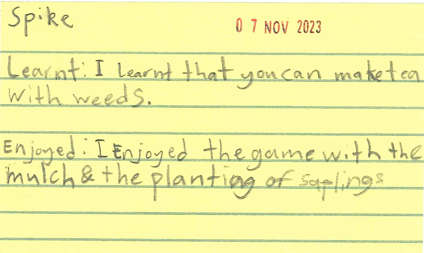 Spike
07 NOV 2023
Learnt: I learnt that you can make tea
with weeds.
Enjoyed: I Enjoyed the game with the
mulch & the planting of saplings